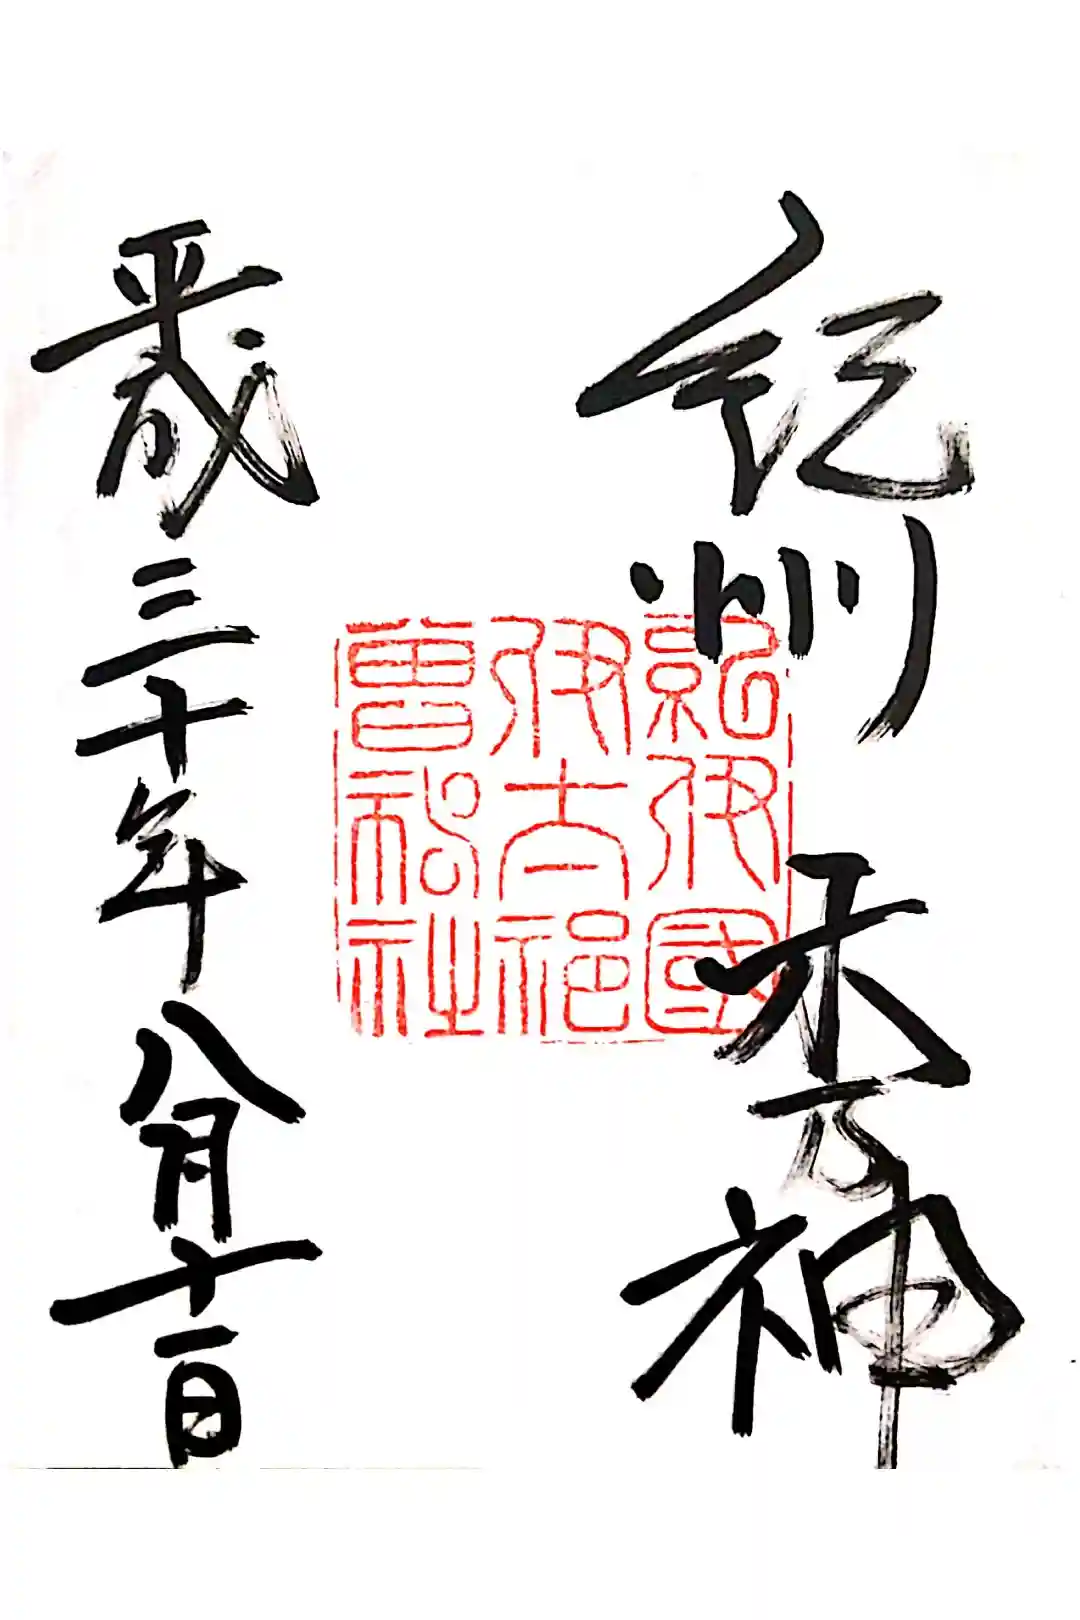 紀州 木乃神
紀伊國
伊太祁
曽神社
平成三十年八月十一日